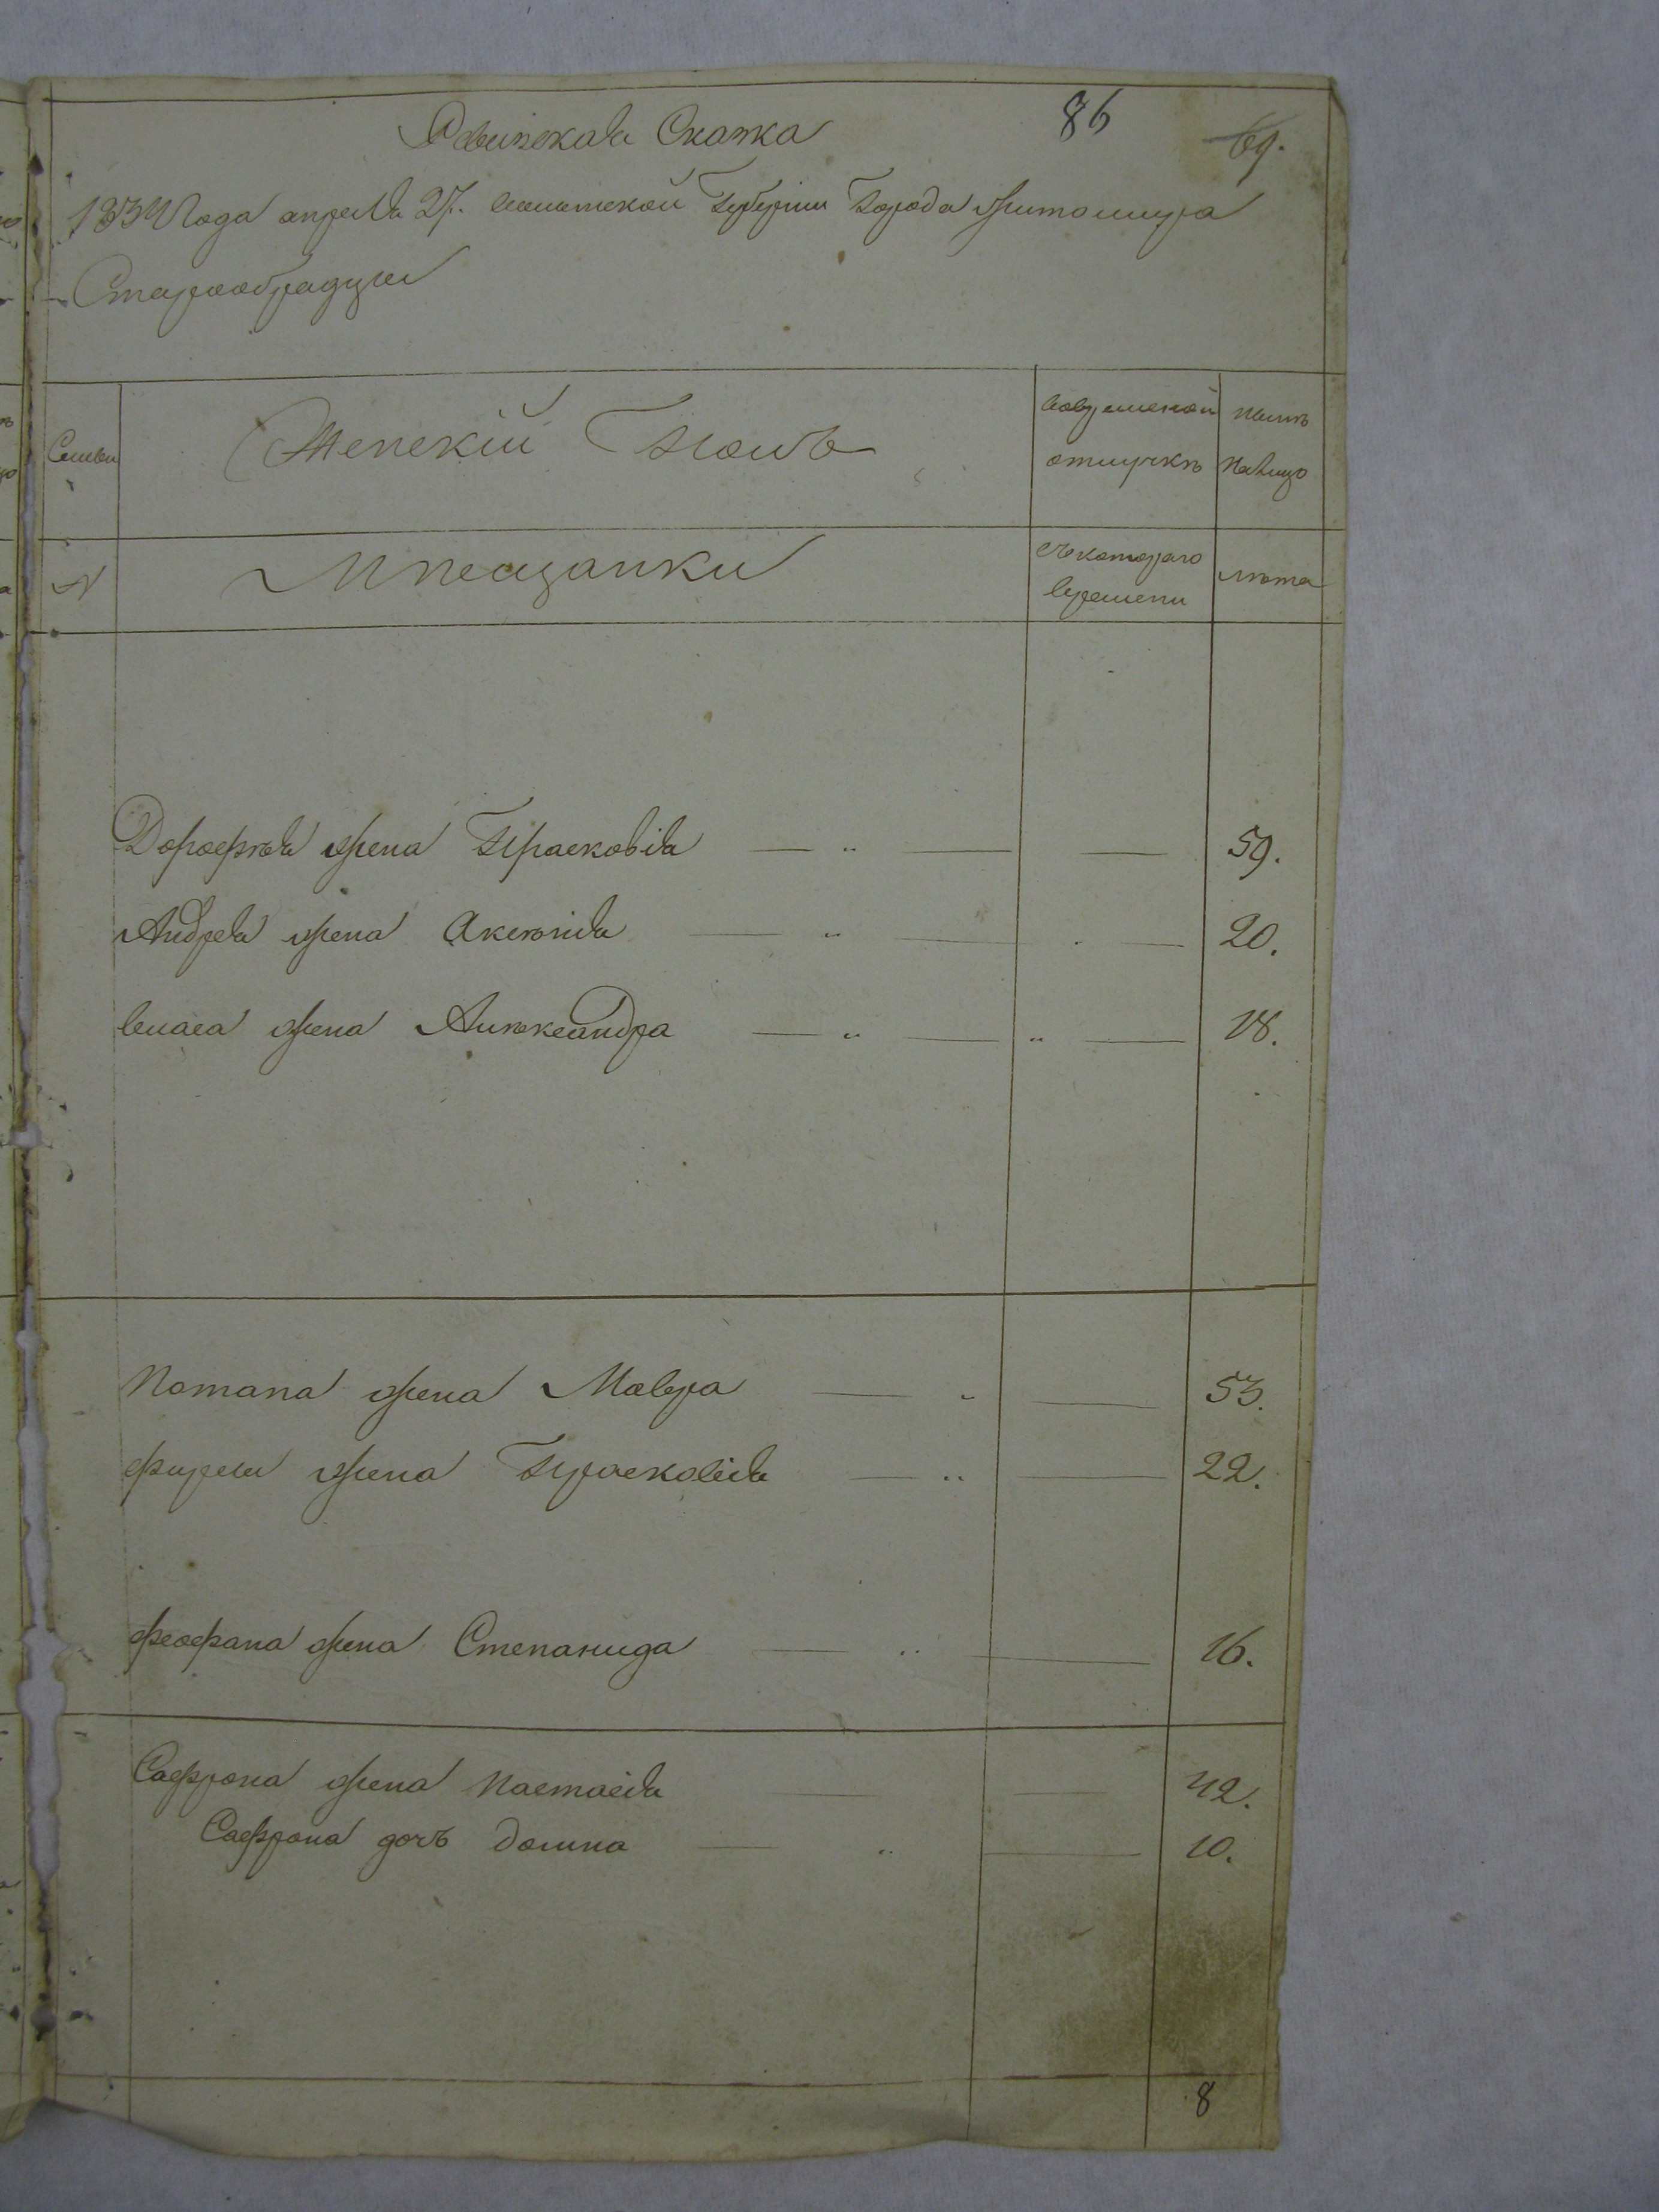 Ревизская Сказка 86 69.
1834 Года апреля 27. волынской Губернии Города житомира
Старообрядцы
Семьи Женский Полъ вовременной отлучкѣ нынѣ налицо
N Мѣщанки скотораго времени лѣта
Дорофѣя жена Прасковія 59.
Андрея жена Аксюнія 20.
власа жена Алѣксандра 18.
Потапа жена Мавра 53.
фирса жена Прасковія 22.
феофана жена Степанида 16.
Сафрона жена Настасія 42.
Сафрона дочь домна 10.
8